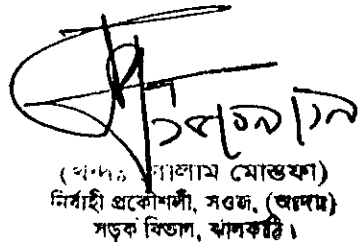 গোলাম মোস্তফা)
নির্বাহী প্রকৌশলী, সওজ, (অঃদাঃ)
সড়ক বিভাগ, ঝালকাঠি।